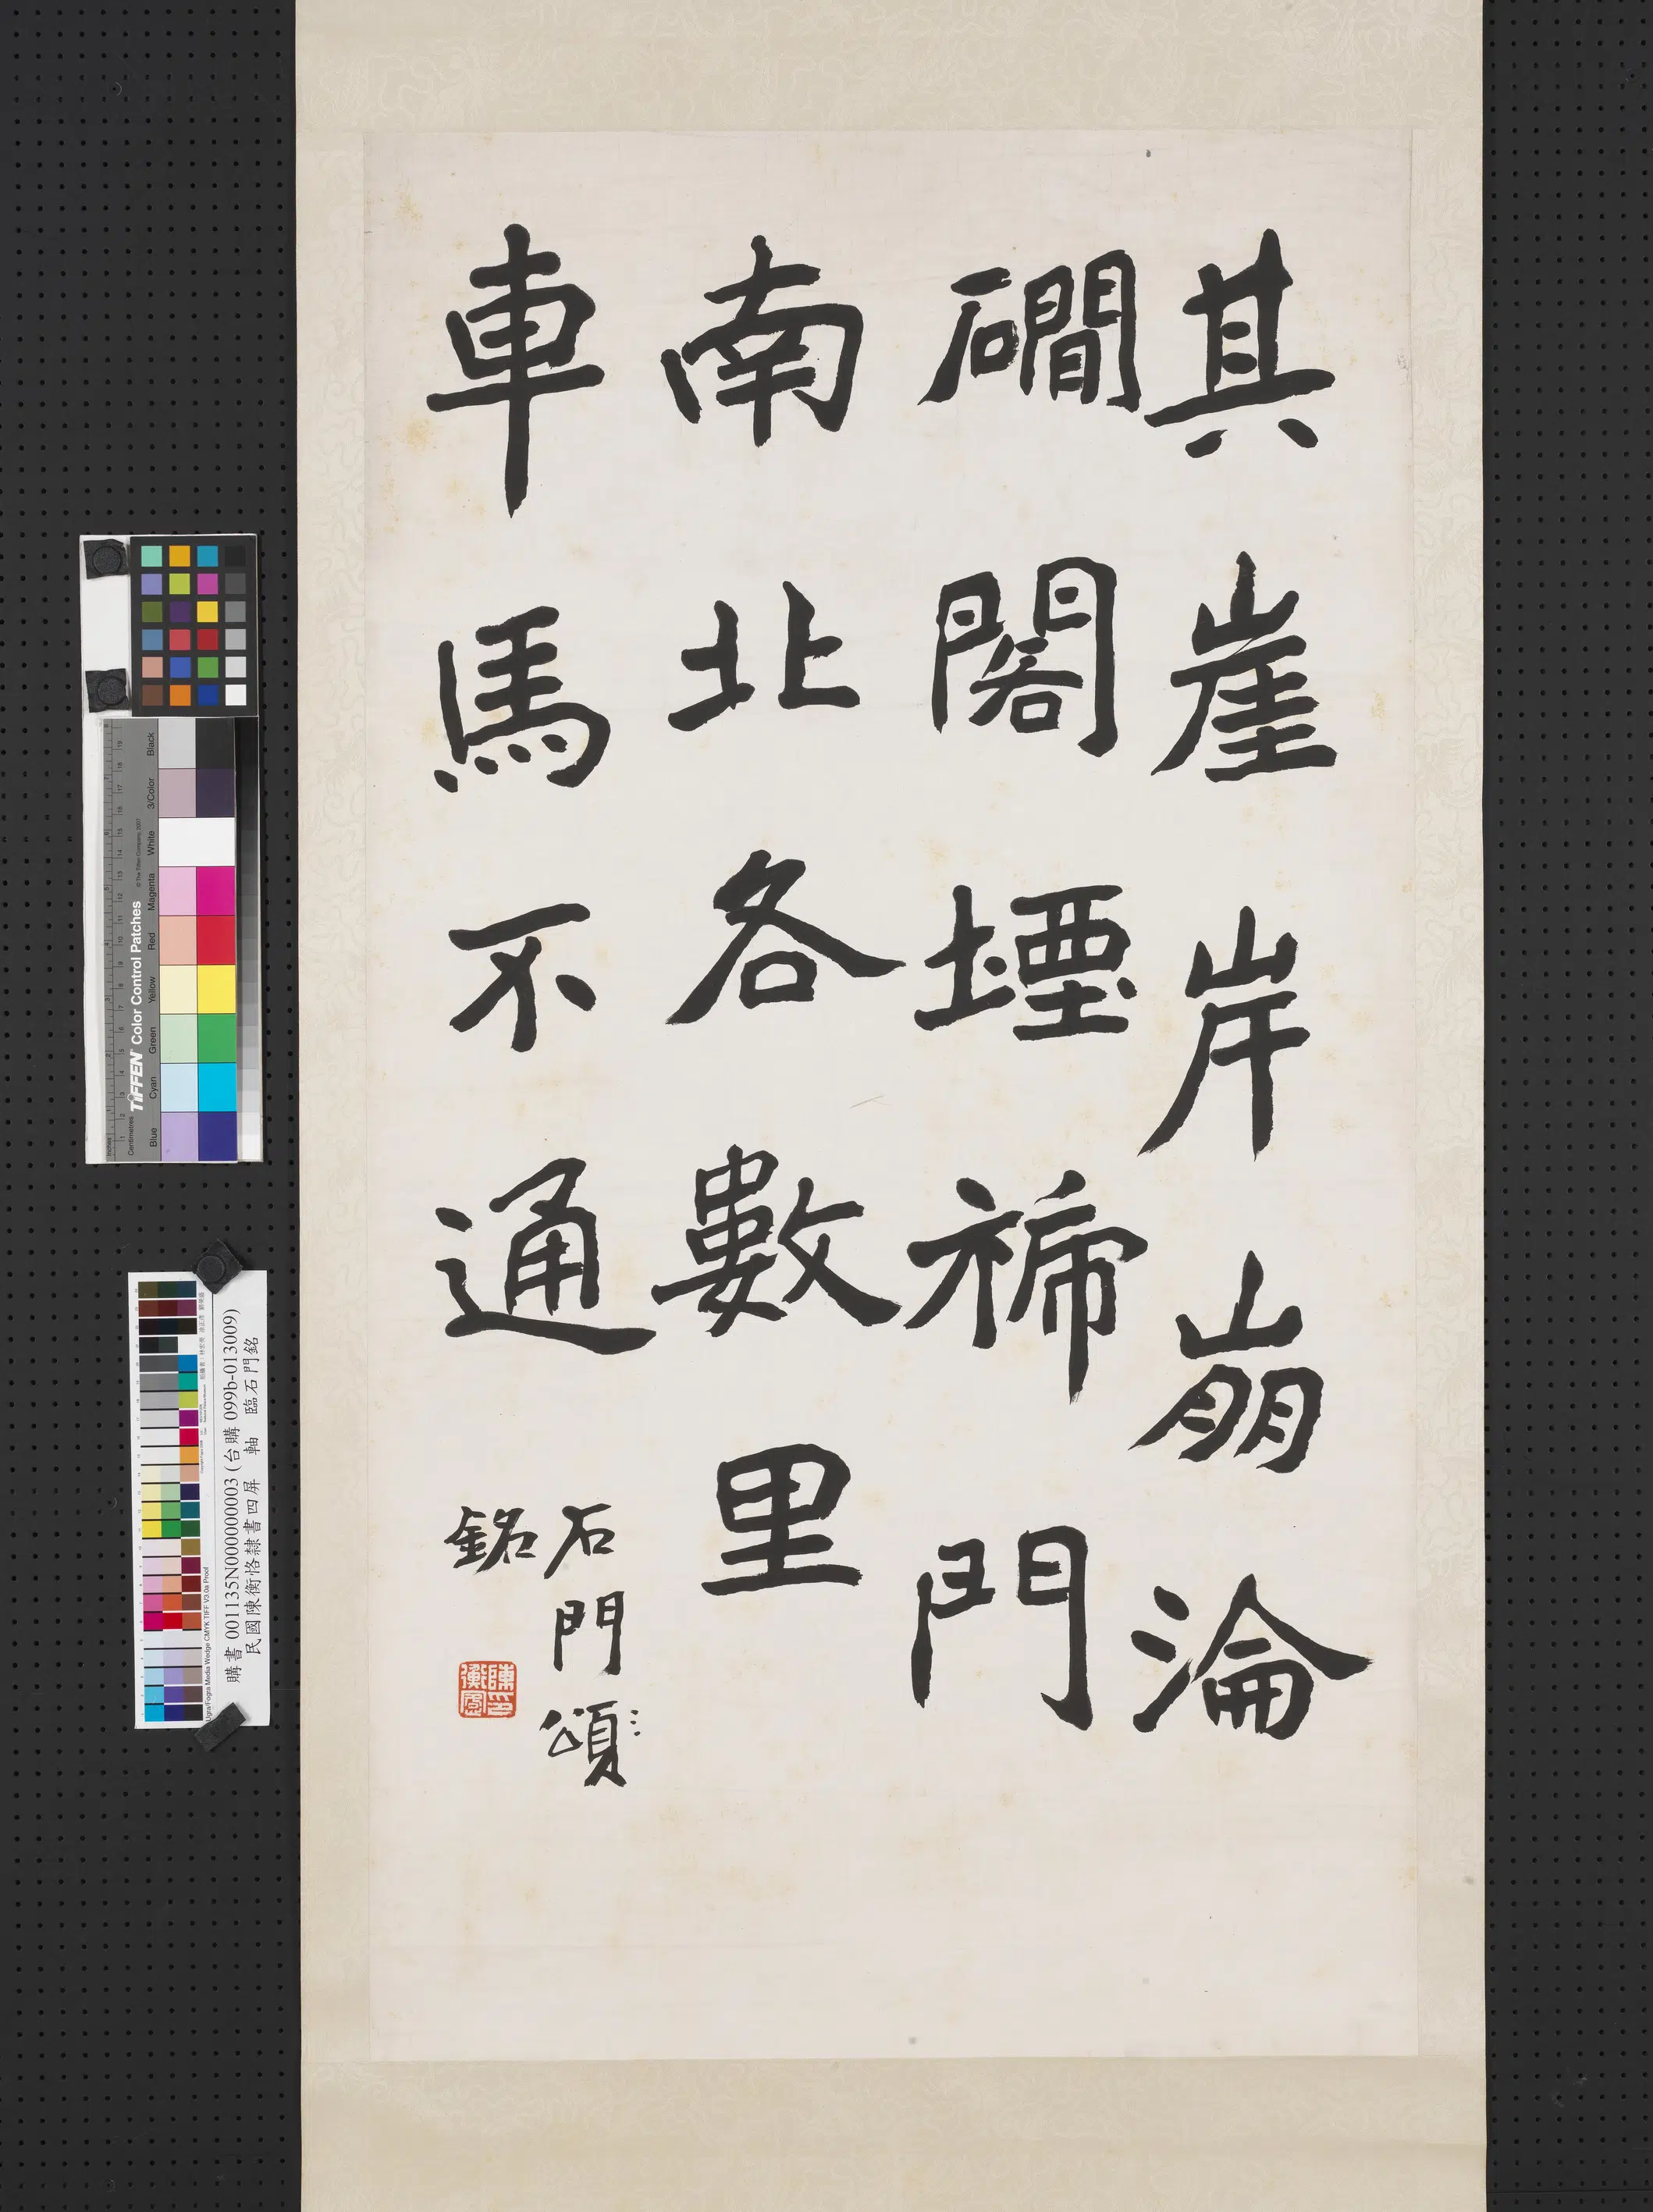 其崖岸崩淪
磵閣堙禘門
南北各數里
車馬不通
石門頌
銘
陳印衡恪
TIFFEN Color Control Patches
© The Tiffen Company, 2007
Centimetres
Inches
Blue Cyan Green Yellow Red Magenta White 3/Color Black
購書 001135N000000003 (台購 099b-013009)
民國陳衡恪隸書四屏 軸 臨石門銘
Ugra/Fogra Media Wedge CMYK TIFF V3.0a Proof